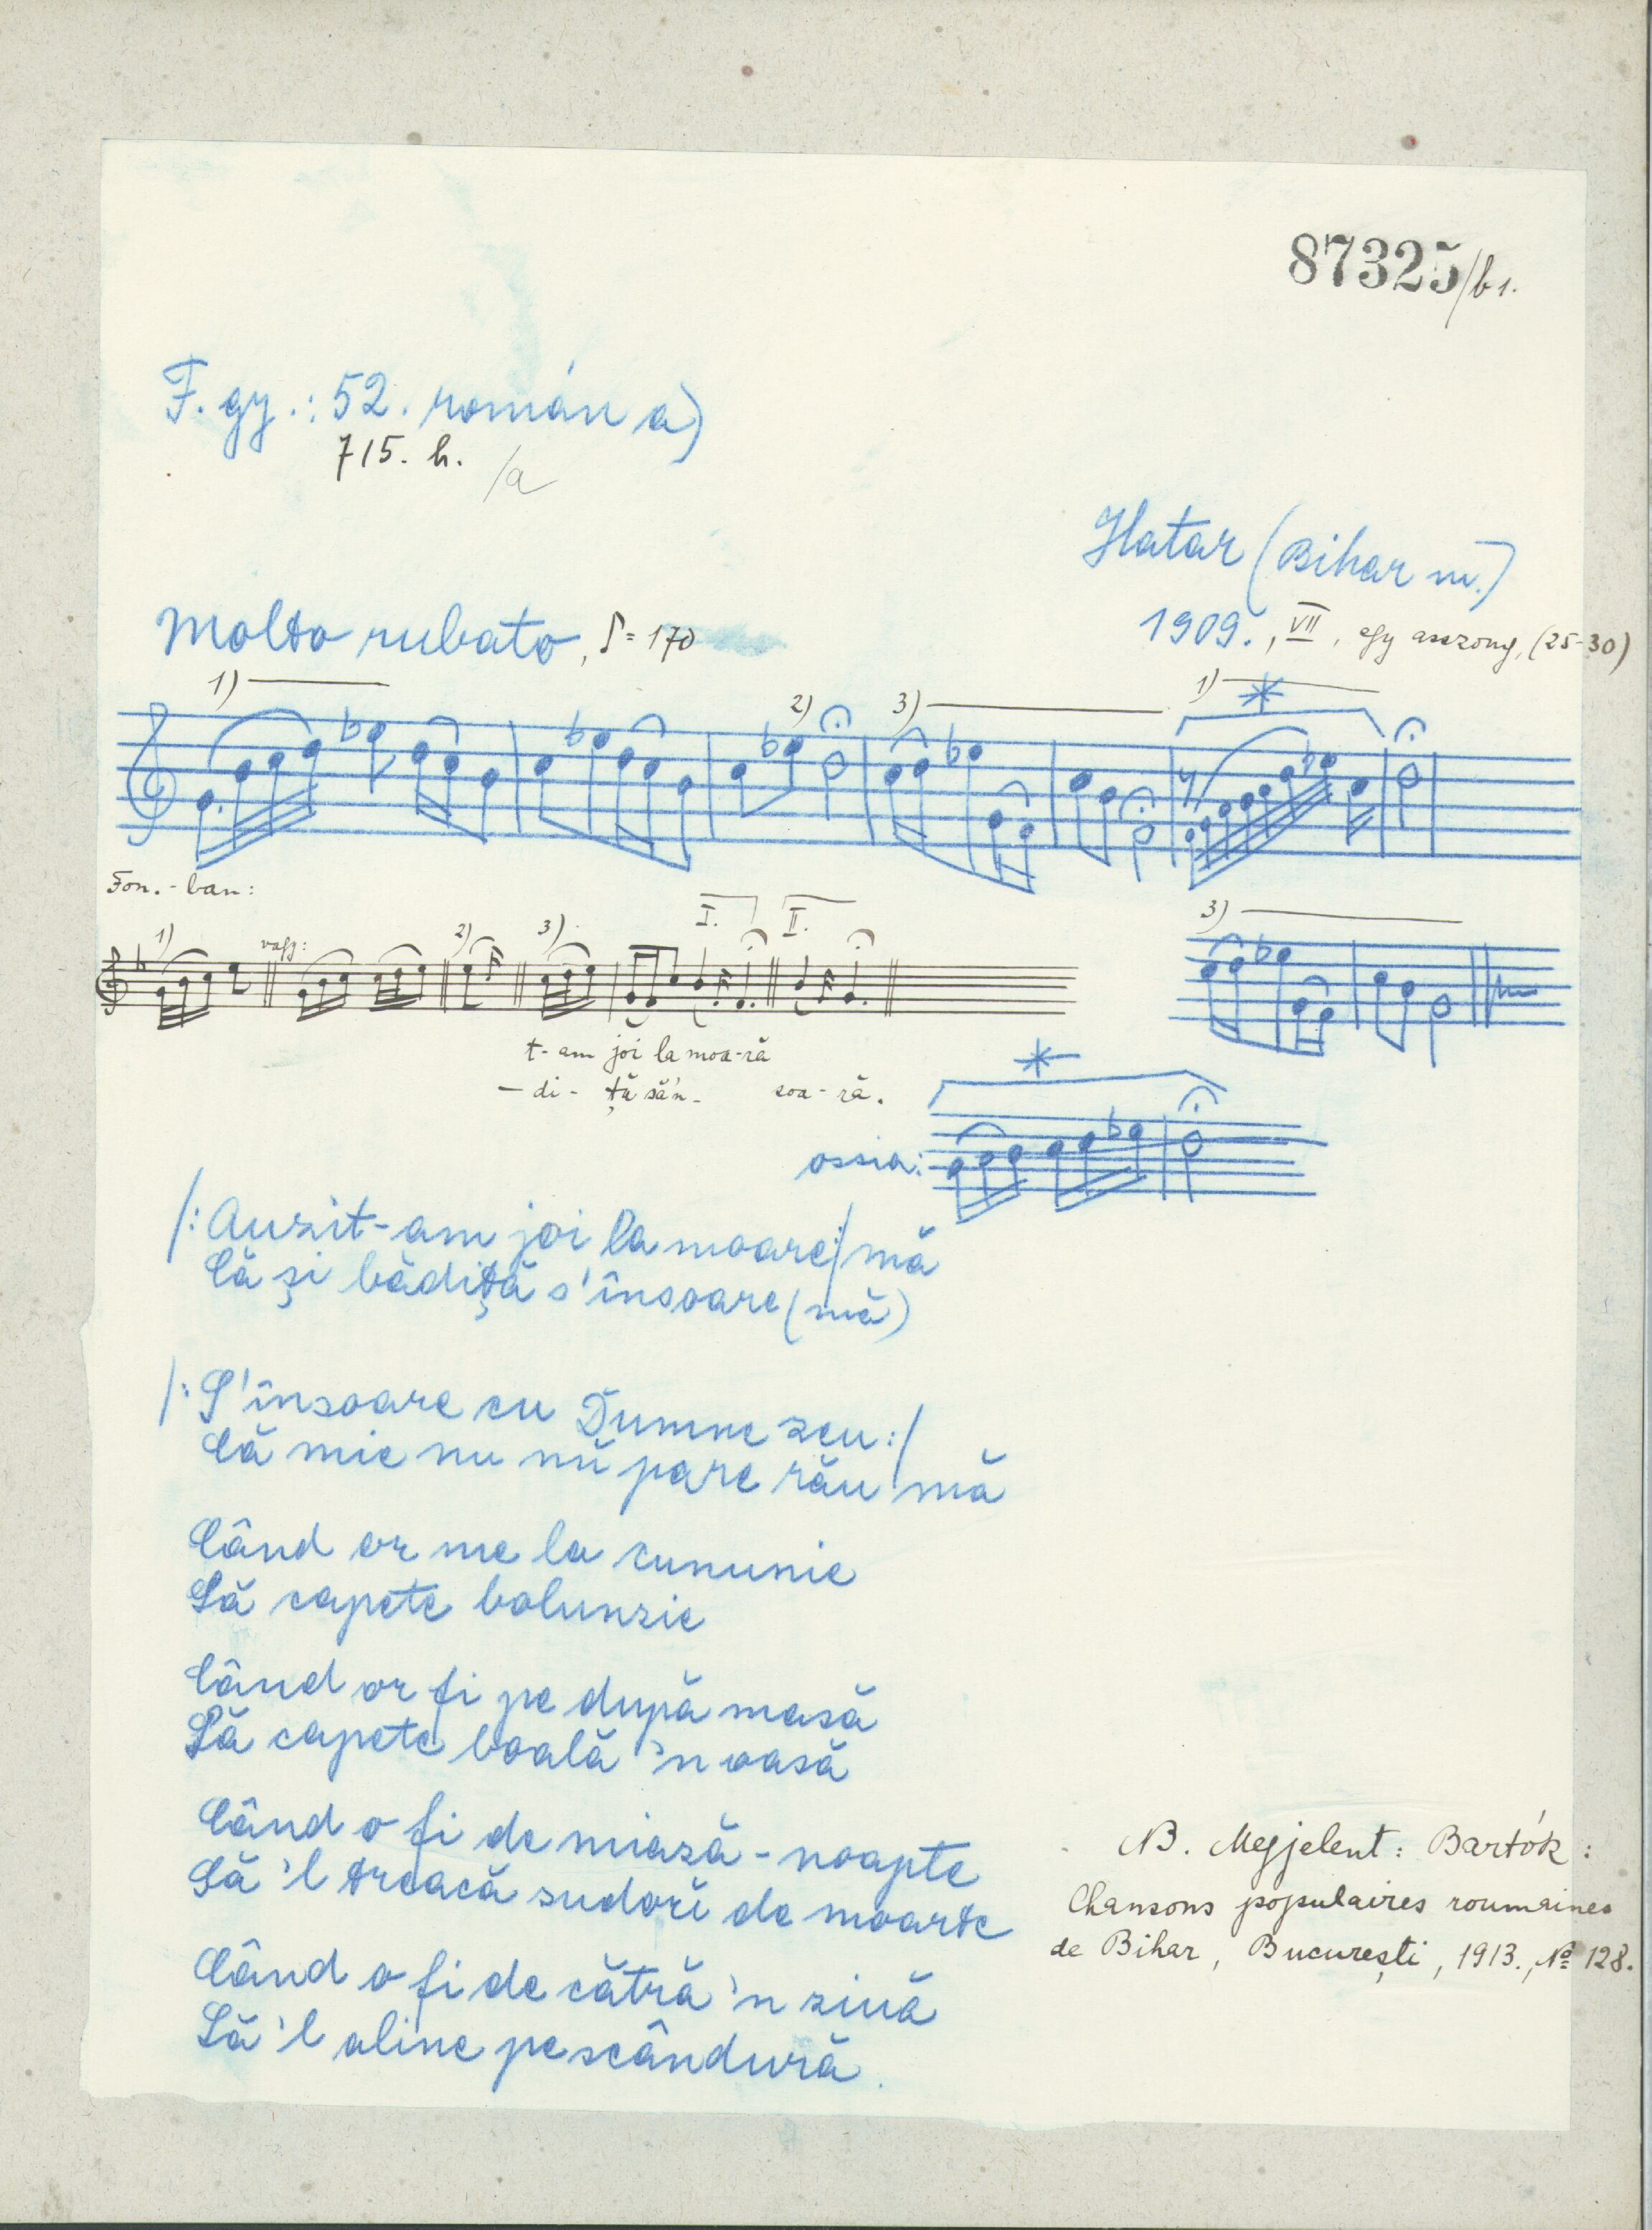 87325/b1.
F. gy.: 52. román a)
715. h. /a
Hatar (Bihar m.)
1909., VII, egy asszony, (25-30)
Molto rubato, ♪=170
1) 2) 3) 1) *
Fon.-ban:
1) vagy: 2) 3) I. II.
3)
t-am joi la moa-ră
-di-ță să'n- soa-ră.
*
ossia:
/: Auzit-am joi la moare :/ mă
Că și bădiță s'însoare (mă)
/: S'însoare cu Dumnezeu :/
Că mie nu nŭ pare rău mă
Când or me la cununie
Să capete bolunzie
Când or fi pe după masă
Să capete boală 'n oasă
Când o fi de miază-noapte
Să 'l treacă sudori de moarte
Când o fi de cătră 'n ziuă
Să 'l aline pe scândură.
NB. Megjelent: Bartók:
Chansons populaires roumaines
de Bihar, București, 1913., No 128.